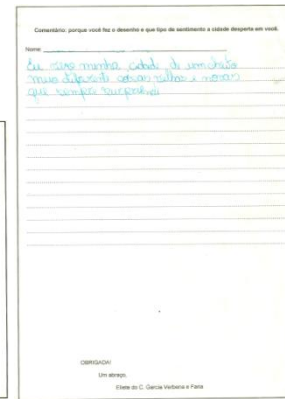 Comentário: porque você fez o desenho e que tipo de sentimento a cidade desperta em você.
Nome:
Eu vivo minha cidade di um cheito
meio diferenti coisas velhas i novas
que sempre surpreendi
OBRIGADA!
Um abraço,
Eliete do C. Garcia Verbena e Faria